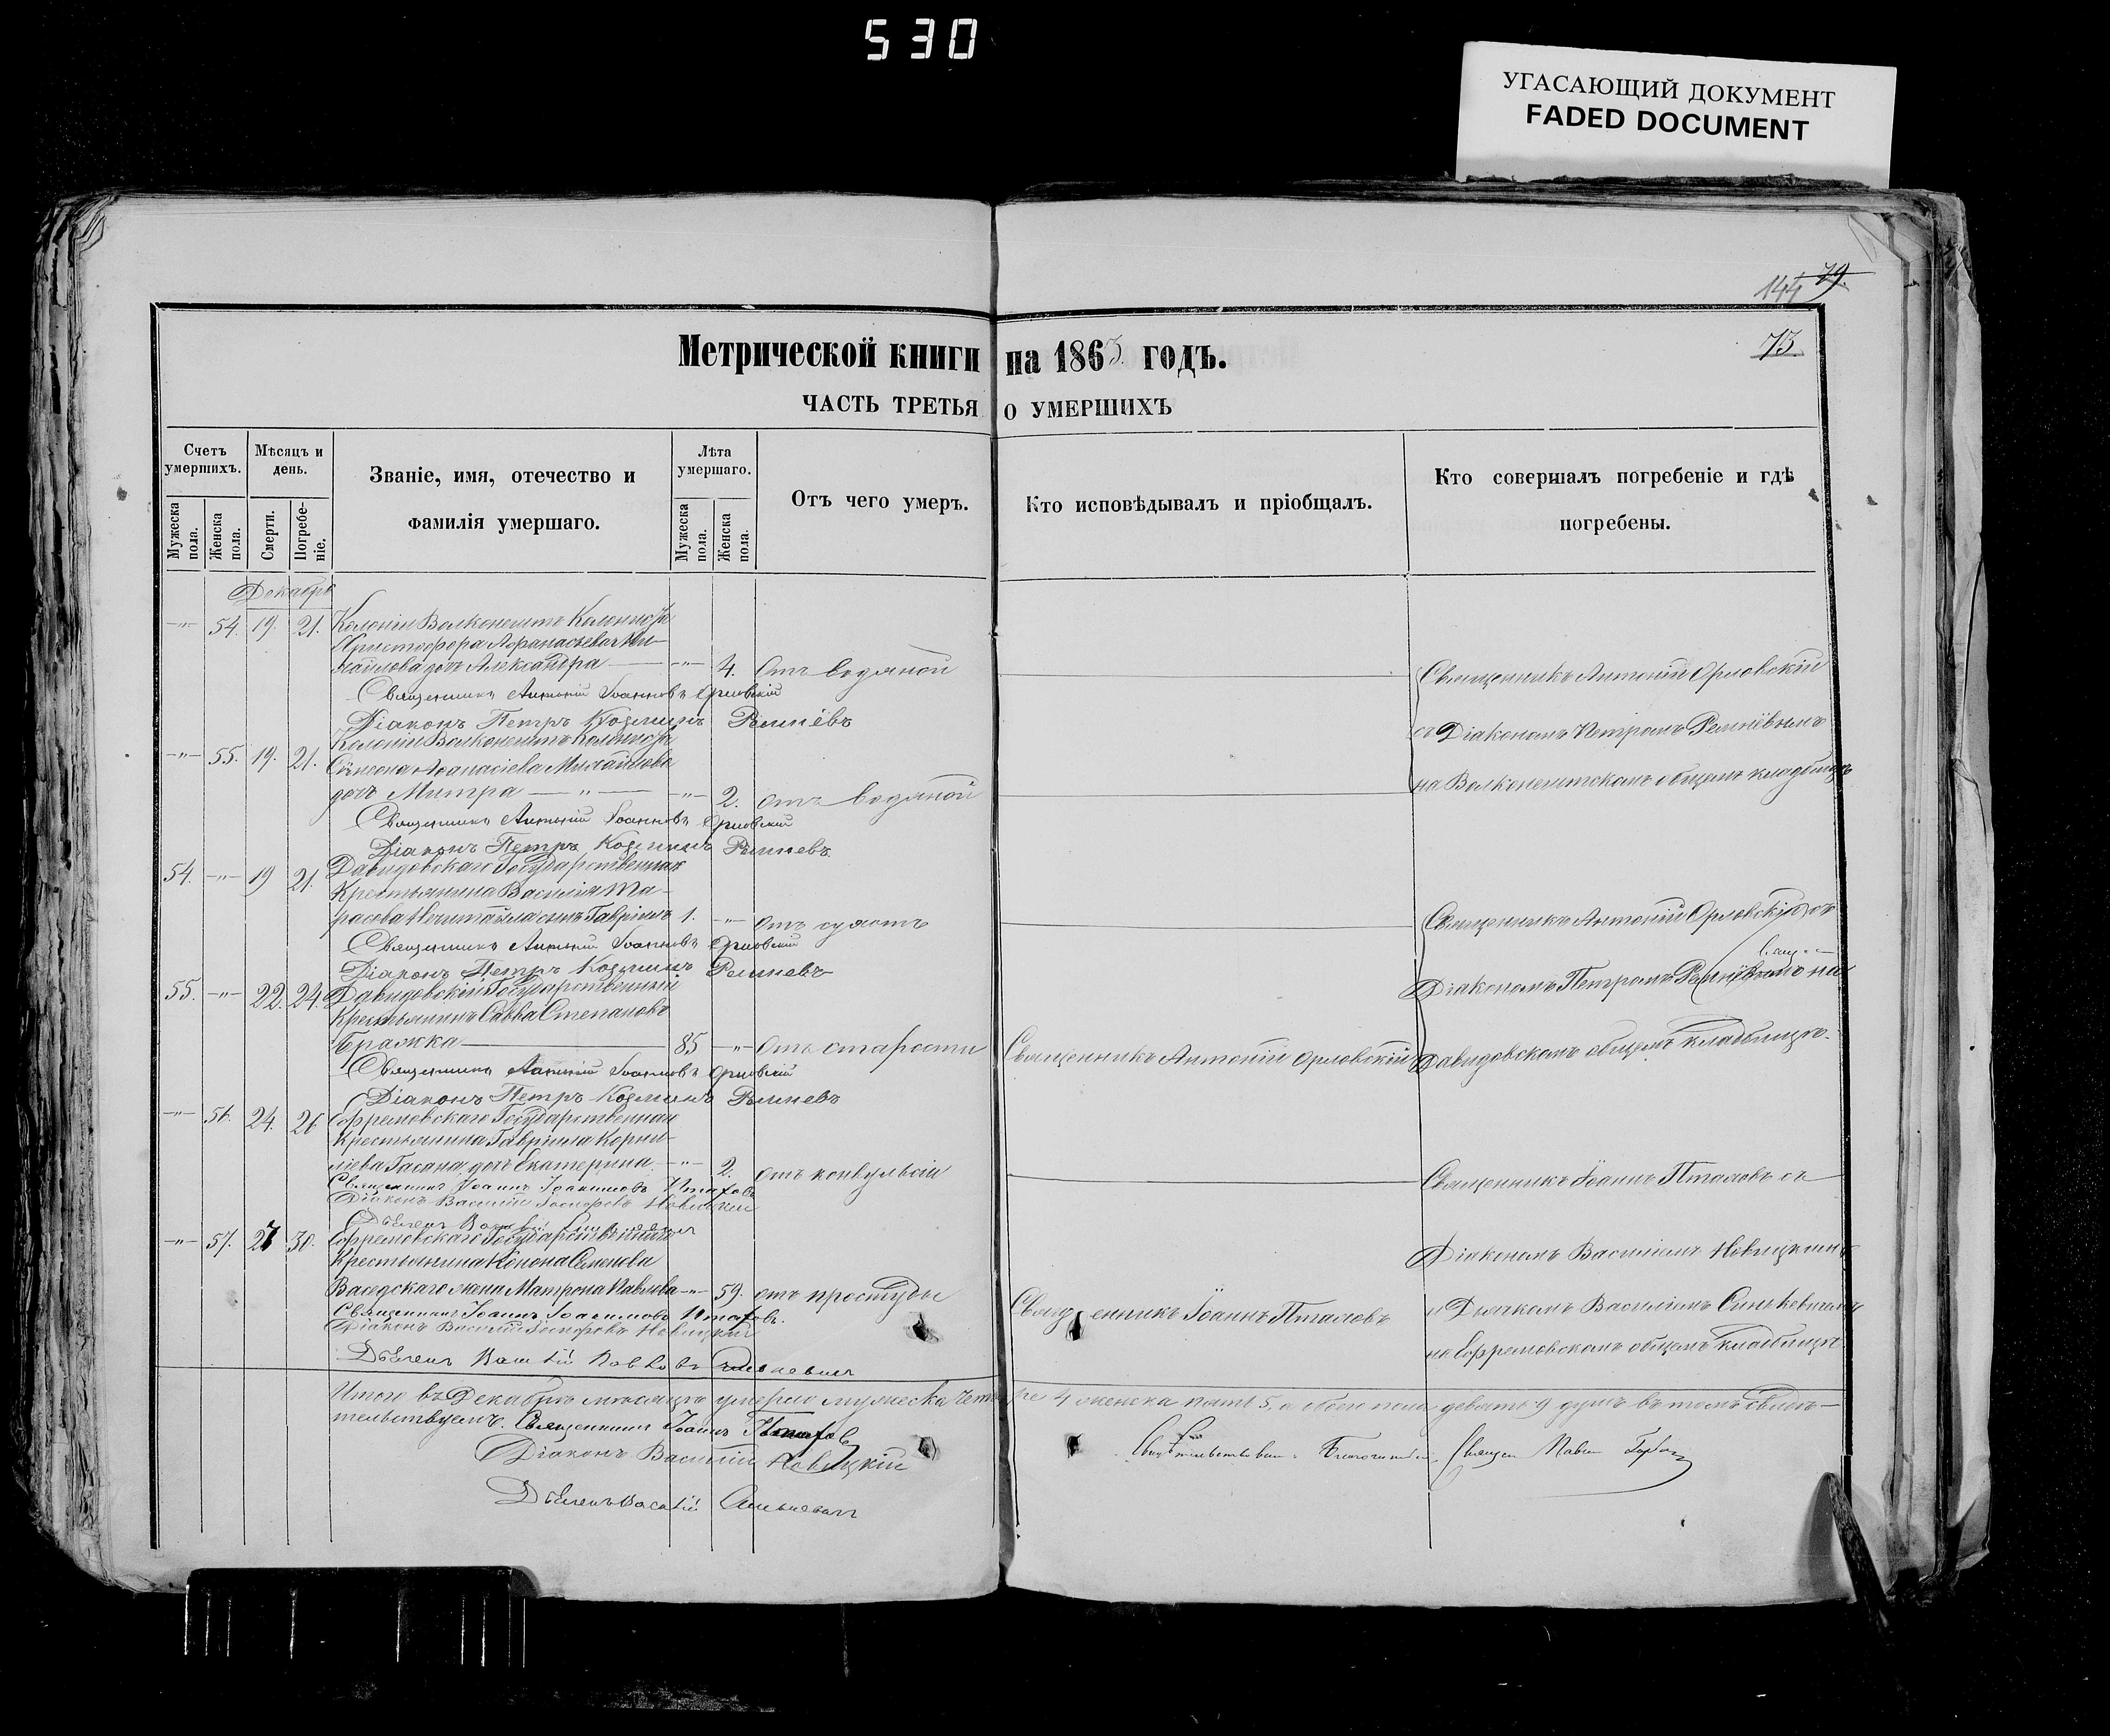 530
УГАСАЮЩИЙ ДОКУМЕНТ
FADED DOCUMENT
144 79.
73
Метрической книги на 1863 годъ.
ЧАСТЬ ТРЕТЬЯ О УМЕРШИХЪ
Счетъ умершихъ.
Мужеска пола.
Женска пола.
Мѣсяцъ и день.
Смерти.
Погребеніе.
Званіе, имя, отечество и фамилія умершаго.
Лѣта умершаго.
Мужеска пола.
Женска пола.
Отъ чего умеръ.
Кто исповѣдывалъ и пріобщалъ.
Кто совершалъ погребеніе и гдѣ погребены.
Декабрь
-"- 54. 19. 21. Колоніи Волконештъ Колониста
Христофора Афанасьева Ми-
хайлова дочь Александра -"- 4. Отъ водяной
Священникъ Антоній Іоанновъ Орловскій
Діаконъ Петръ Козминъ
Священникъ Антоній Орловскій
съ Діакономъ Петромъ
на Волконештскомъ общемъ кладбищѣ
-"- 55. 19. 21. Колоніи Волконештъ Колониста
Симеона Афанасіева Михайлова
дочь Митра -"- -"- 2. отъ водяной
Священникъ Антоній Іоанновъ Орловскій
Діаконъ Петръ Козминъ
54. -"- 19 21. Давидовскаго Государственнаго
Крестьянина Василія Та-
расова сынъ Гавріилъ 1. -"- отъ сухотъ
Священникъ Антоній Іоанновъ Орловскій
Діаконъ Петръ Козминъ
Священникъ Антоній Орловскій съ
Діакономъ Петромъ на
Давидовскомъ общемъ кладбищѣ.
55. -"- 22. 24. Давидовскій Государственный
Крестьянинъ Савва Степановъ
Бражка 85 -"- Отъ старости Священникъ Антоній Орловскій
Священникъ Антоній Іоанновъ Орловскій
Діаконъ Петръ Козминъ
-"- 56. 24. 26 Ефремовскаго Государственнаго
Крестьянина Гавріила Корни-
ліева Гасана дочь Екатерина -"- 2. отъ конвульсіи
Священникъ Іоаннъ Іоакимовъ
Діаконъ Василій Новицкій
Священникъ Іоаннъ съ
Діакономъ Василіемъ Новицкимъ
и Дьячкомъ Василіемъ Синькевичемъ
на Ефремовскомъ общемъ кладбищѣ
-"- 57. 27 30. Ефремовскаго Государственнаго
Крестьянина Конона Семенова
жена Матрона Павлова -"- 59. отъ простуды Священникъ Іоаннъ
Священникъ Іоаннъ Іоакимовъ
Діаконъ Василій Новицкій
Итого въ Декабрѣ мѣсяцѣ умерло мужеска четыре 4 женска пять 5, а обоего пола девять 9 душъ въ томъ свидѣ-
тельствуемъ. Священникъ Іоаннъ
Діаконъ Василій Новицкій
Свидѣтельствовалъ Благочинный Священ Павелъ